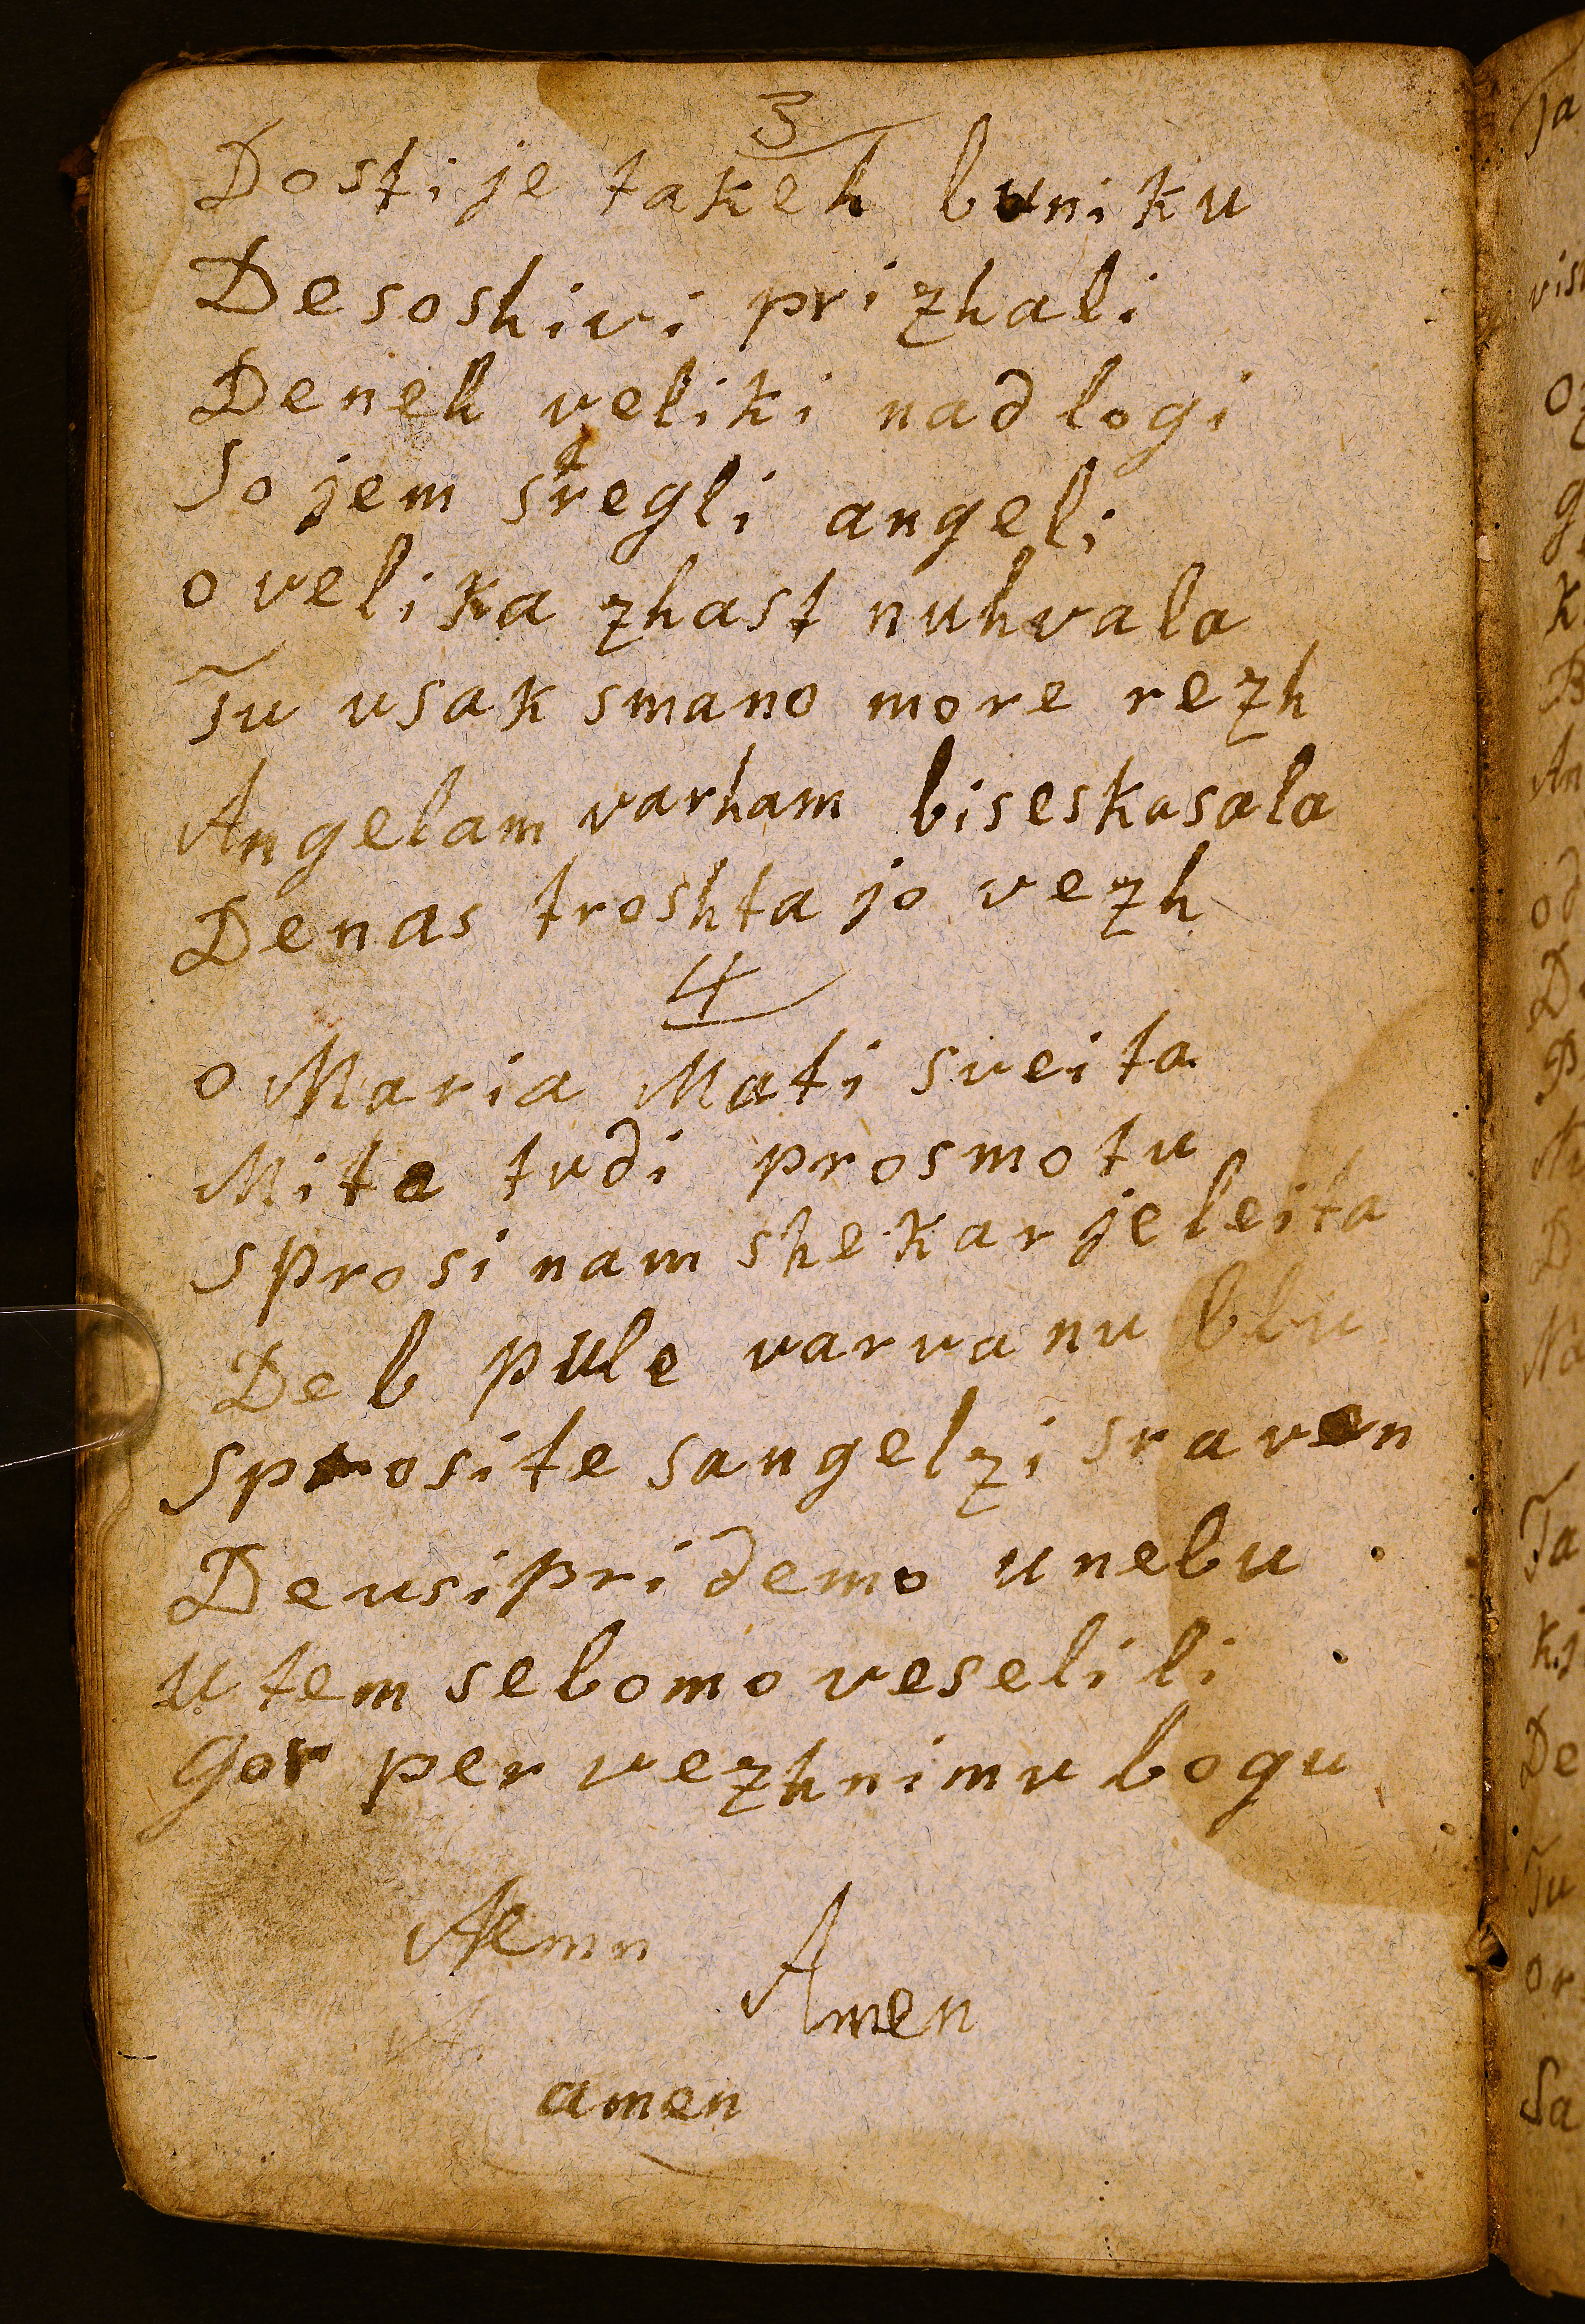 3
Dosti je takeh buniku
Desoshivi prizhali
Deneh veliki nadlogi
So jem stregli angeli
o velika zhast nuhvala
Tu usak smano more rezh
Angelam varham biseskasala
Denas troshta jo vezh
4
o Maria Mati sveita
Mite tudi prosmotu
Sprosi nam shekarjeleita
De b pule varvanu blu
Sprosite sangelzi sraven
Deusi pridemo unebu
U tem sebomo veselili
Gor per vezhnimu bogu
Aemn
Amen
amen